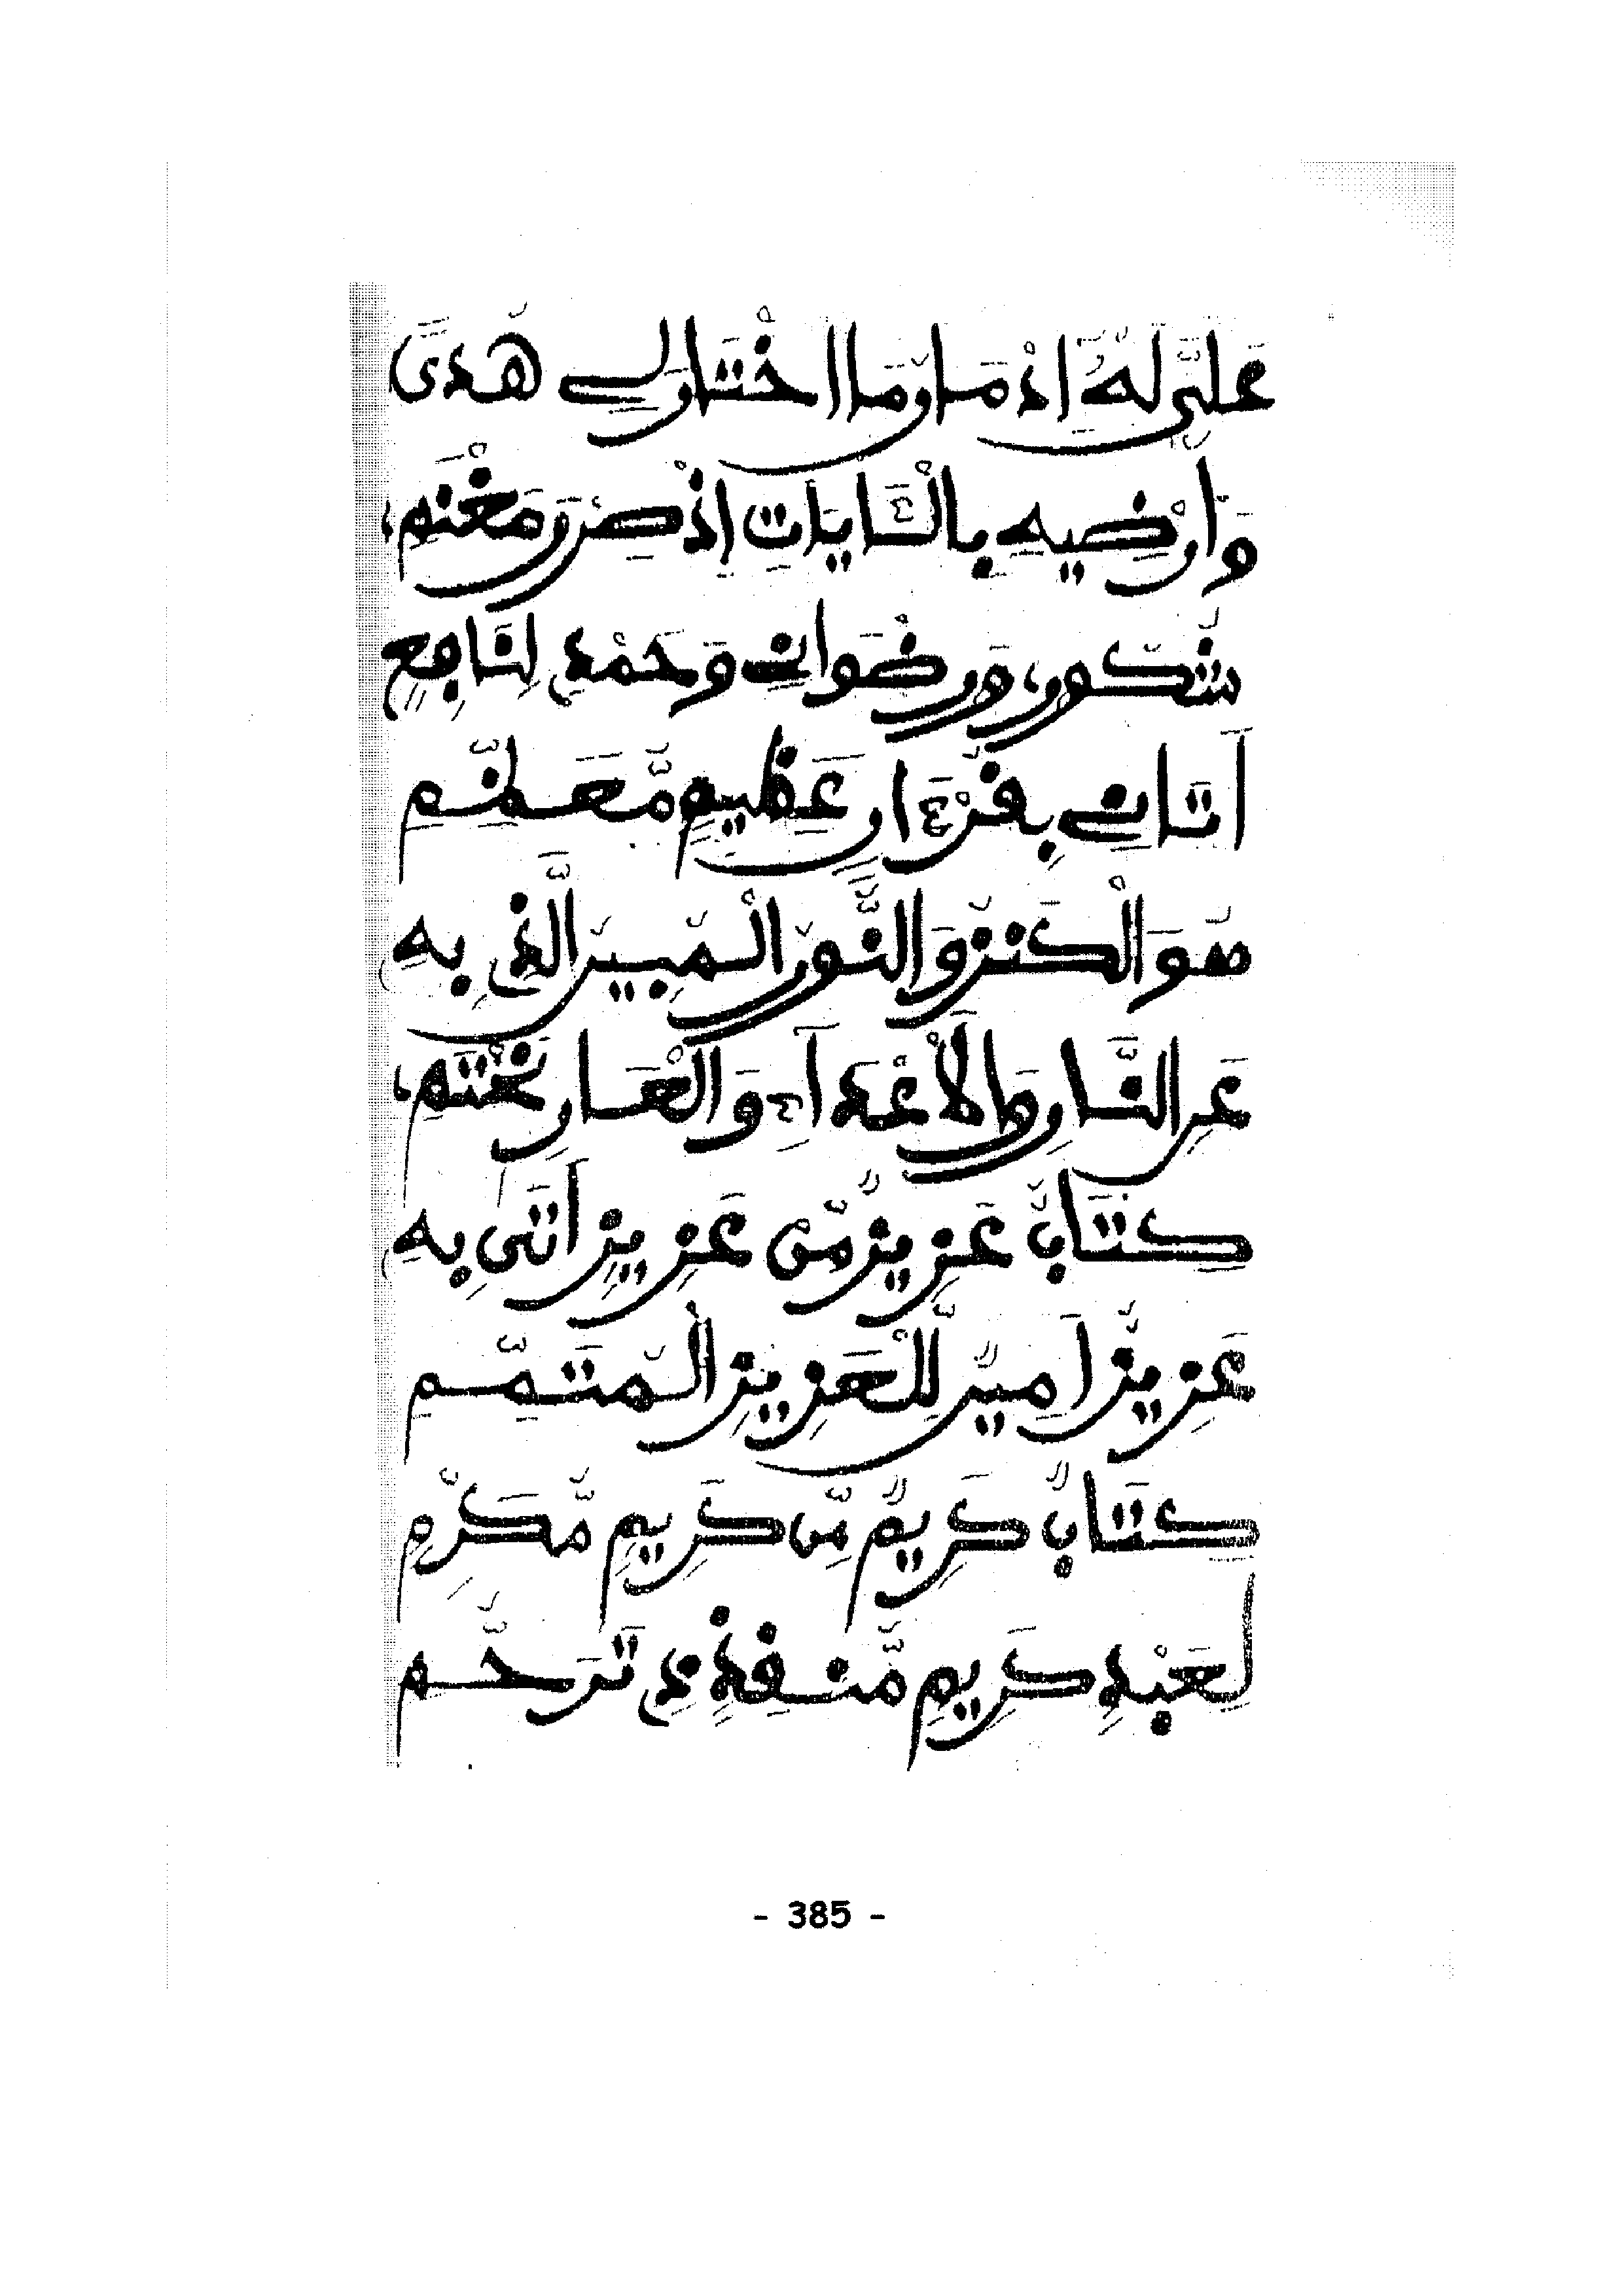 علي له اذ مار وما اختار لي هدى
وارضيه بالايات اذ صر ومغنم
شكور ورضواني وحمدي لنافع
آتاني بقرءان عظيم معظم
هو الكنز والنور المبين الذي به
عن النار والاعداء والعار نختم
كتاب عزيز من عزيز اتى به
عزيز امين للعزيز المتمم
كتاب كريم من كريم مكرم
لعبد كريم منقذ ذي ترحم
- 385 -